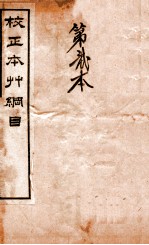 校正本艸綱目
第貳本